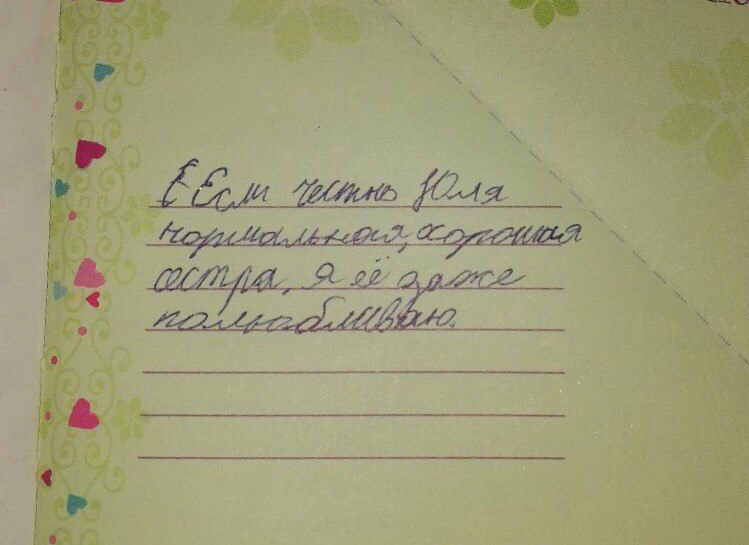 Е Если честно Юля
нормальная, хорошая
сестра, я её даже
полюбливаю.